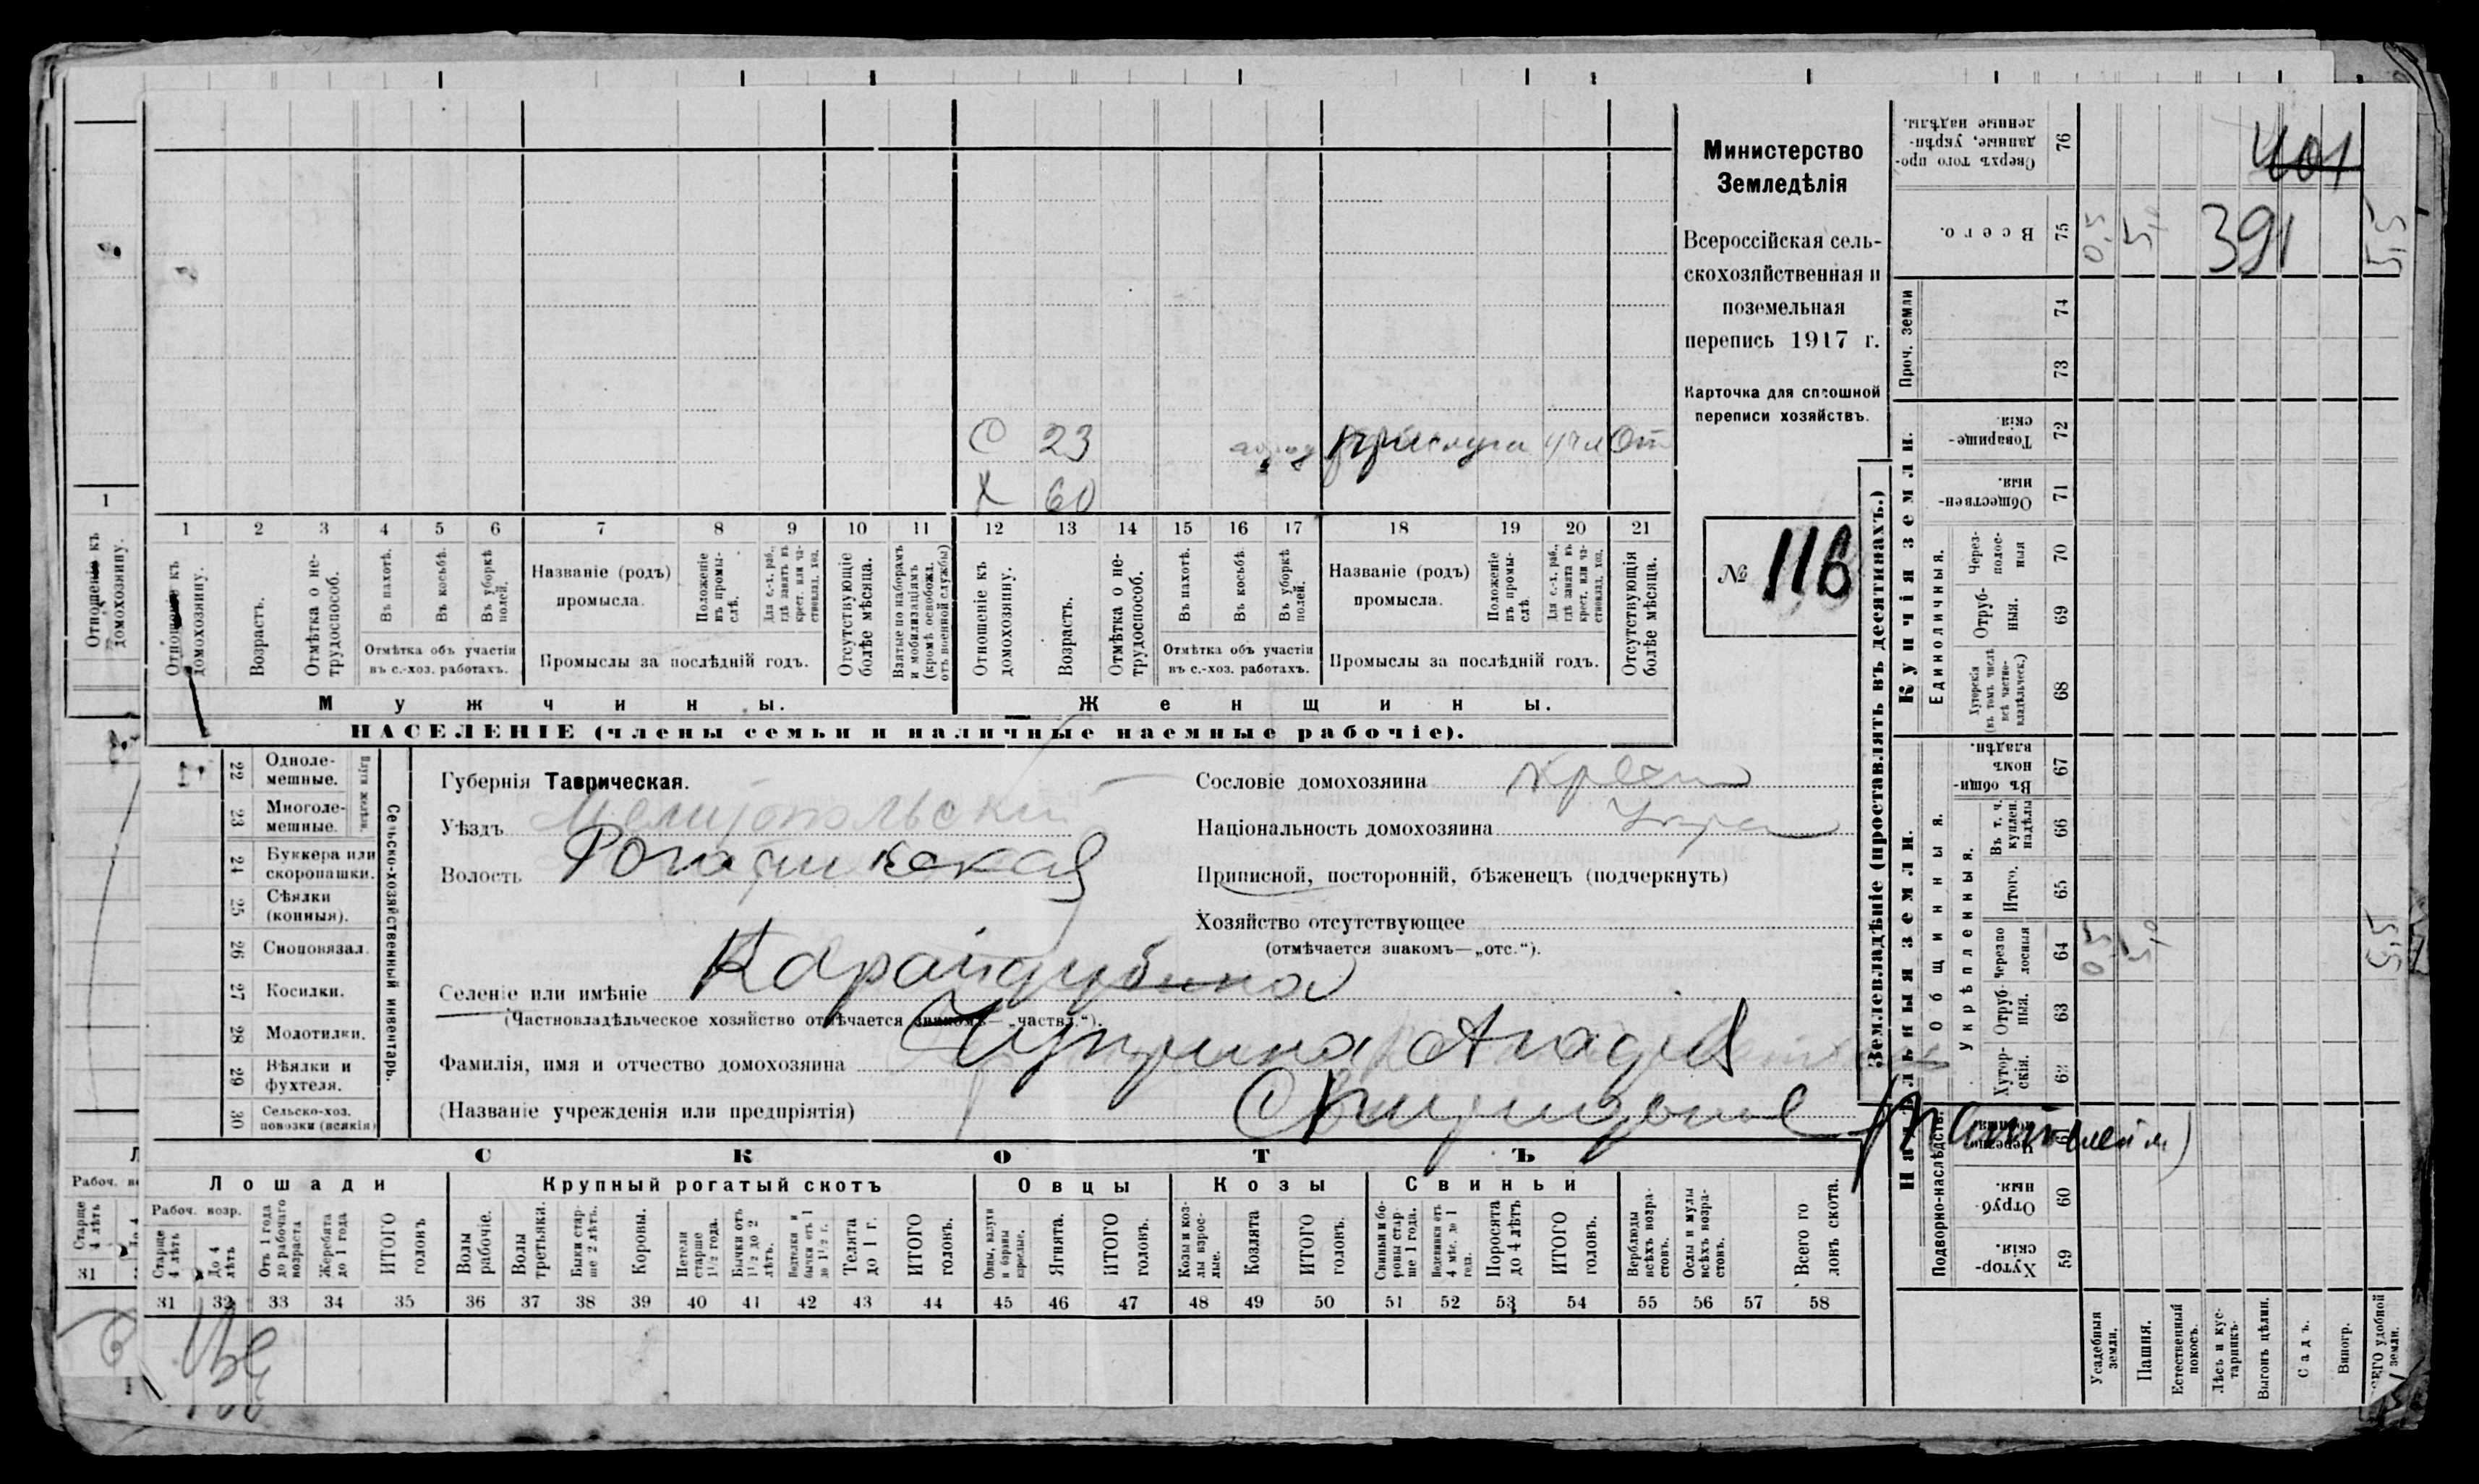 Министерство
Земледѣлія
Всероссійская сель-
скохозяйственная и
поземельная
перепись 1917 г.
Карточка для сплошной
переписи хозяйствъ.
№ 116
С 23 прислуга От
Х 60
1 2 3 4 5 6 7 8 9 10 11 12 13 14 15 16 17 18 19 20 21
Отношеніе къ домохозяину.
Возрастъ.
Отмѣтка о не-трудоспособ.
Въ пахотѣ.
Въ косьбѣ.
Въ уборкѣ полей.
Отмѣтка объ участіи въ с.-хоз. работахъ.
Названіе (родъ) промысла.
Положеніе въ промы-слѣ.
Для с.-х. раб., гдѣ занятъ въ крест. или ча-стновлад. хоз.
Промыслы за послѣдній годъ.
Отсутствующіе болѣе мѣсяца.
Взятые по наборамъ и мобилизаціямъ (кромѣ освобожд. отъ военной службы)
Отношеніе къ домохозяину.
Возрастъ.
Отмѣтка о не-трудоспособ.
Въ пахотѣ.
Въ косьбѣ.
Въ уборкѣ полей.
Отмѣтка объ участіи въ с.-хоз. работахъ.
Названіе (родъ) промысла.
Положеніе въ промы-слѣ.
Для с.-х. раб., гдѣ занята въ крест. или ча-стновлад. хоз.
Промыслы за послѣдній годъ.
Отсутствующія болѣе мѣсяца.
Мужчины. Женщины.
НАСЕЛЕНІЕ (члены семьи и наличные наемные рабочіе).
22 Одноле-мешные.
23 Многоле-мешные.
Плуги желѣзн.
24 Буккера или скоропашки.
25 Сѣялки (конныя).
26 Сноповязал.
27 Косилки.
28 Молотилки.
29 Вѣялки и фухтеля.
30 Сельско-хоз. повозки (всякія)
Сельско-хозяйственный инвентарь.
Губернія Таврическая.
Уѣздъ Мелитопольскій
Волость Рогачикская
Селеніе или имѣніе Карайдубина
(Частновладѣльческое хозяйство отмѣчается знакомъ—„частвл.“).
Фамилія, имя и отчество домохозяина Чуприна
(Названіе учрежденія или предпріятія)
Сословіе домохозяина
Національность домохозяина Укра
Приписной, посторонній, бѣженецъ (подчеркнуть)
Хозяйство отсутствующее
(отмѣчается знакомъ—„отс.“).
СКОТЪ
Лошади Крупный рогатый скотъ Овцы Козы Свиньи
Рабоч. возр.
Старше 4 лѣтъ
До 4 лѣтъ
Отъ 1 года до рабочаго возраста
Жеребята до 1 года
ИТОГО головъ
Волы рабочіе.
Волы третьяки.
Быки стар-ше 2 лѣтъ.
Коровы.
Нетели старше 1½ года.
Бычки отъ 1½ до 2 лѣтъ.
Подтелки и бычки отъ 1 до 1½ г.
Телята до 1 г.
ИТОГО головъ.
Овцы, валухи и бараны взрослые.
Ягнята.
ИТОГО головъ.
Козы и коз-лы взрос-лые.
Козлята
ИТОГО головъ.
Свиньи и бо-ровы стар-ше 1 года.
Подсвинки отъ 4 мѣс. до 1 года.
Поросята до 4 лѣтъ
ИТОГО головъ.
Верблюды всѣхъ возра-стовъ.
Ослы и мулы всѣхъ возра-стовъ.
Всего го ловъ скота.
31 32 33 34 35 36 37 38 39 40 41 42 43 44 45 46 47 48 49 50 51 52 53 54 55 56 57 58
Землевладѣніе (проставлять въ десятинахъ.)
Надѣльныя земли.
Купчія земли.
Проч. земли
Подворно-наслѣдств.
Общинныя.
Укрѣпленныя.
Единоличныя.
Сверхъ того про-данные, укрѣп-ленные надѣлы. 76
Всего. 75
74
73
Товарище-скія 72
Обществен-ныя. 71
Через-полос-ныя 70
Отруб-ныя. 69
Хуторскія (въ томъ числѣ всѣ частно-владѣльческ.) 68
Въ общи-номъ владѣн. 67
Въ т. ч. куплен. надѣлы 66
Итого. 65
Черезпо лосныя 64
Отруб-ныя. 63
Хутор-скія. 62
Отруб-ныя. 60
Хутор-скія. 59
Усадебныя земли.
Пашня.
Естественный покосъ.
Лѣсъ и кус-тарникъ.
Выгонъ цѣлин.
Садъ.
Виногр.
401
391
0,5 5,0 5,5
0,5 5,0 5,5
1
Отношеніе къ домохозяину.
Старше 4 лѣтъ
31